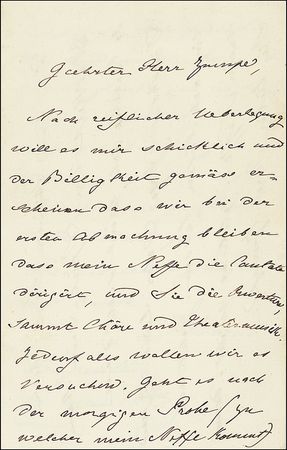 Geehrter Herr Zumpe,
Nach reiflicher Ueberlegung
will es mir schicklich und
der Billigkeit gemäss er-
scheinen dass wir bei der
ersten Abmachung bleiben
dass mein Neffe die Cantate
dirigirt, und Sie die
sammt Chöre und Theatermusik.
Jedenfals wollen wir es
versuchen. Geht es nach
der morgigen Probe (zu
welcher mein Neffe kommt)